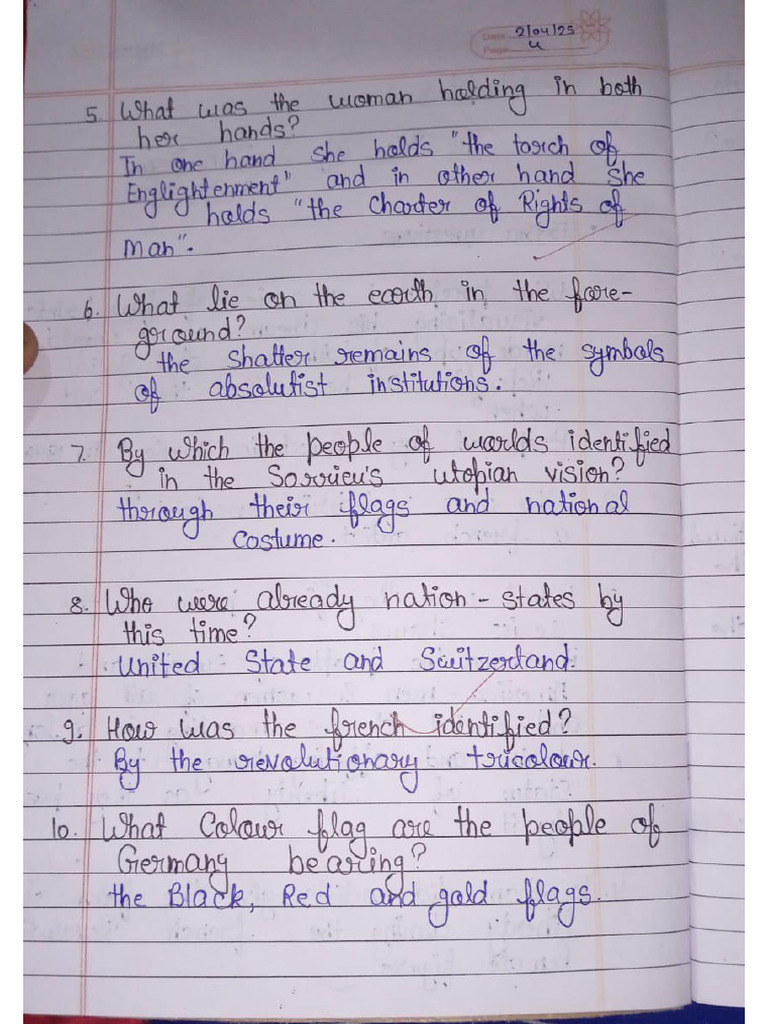 Date 2/04/25
Page 4
5. What was the woman holding in both
her hands?
In one hand she holds "the torch of
Englightenment" and in other hand she
holds "the Charter of Rights of
Man".
6. What lie on the earth in the fore-
ground?
the shatter remains of the symbols
of absolutist institutions.
7. By which the people of worlds identified
in the Sorrieu's utopian vision?
through their flags and national
costume.
8. Who were already nation - states by
this time?
United State and Switzerland.
9. How was the french identified?
By the revolutionary tricolour.
10. What Colour flag are the people of
Germany bearing?
the Black, Red and gold flags.